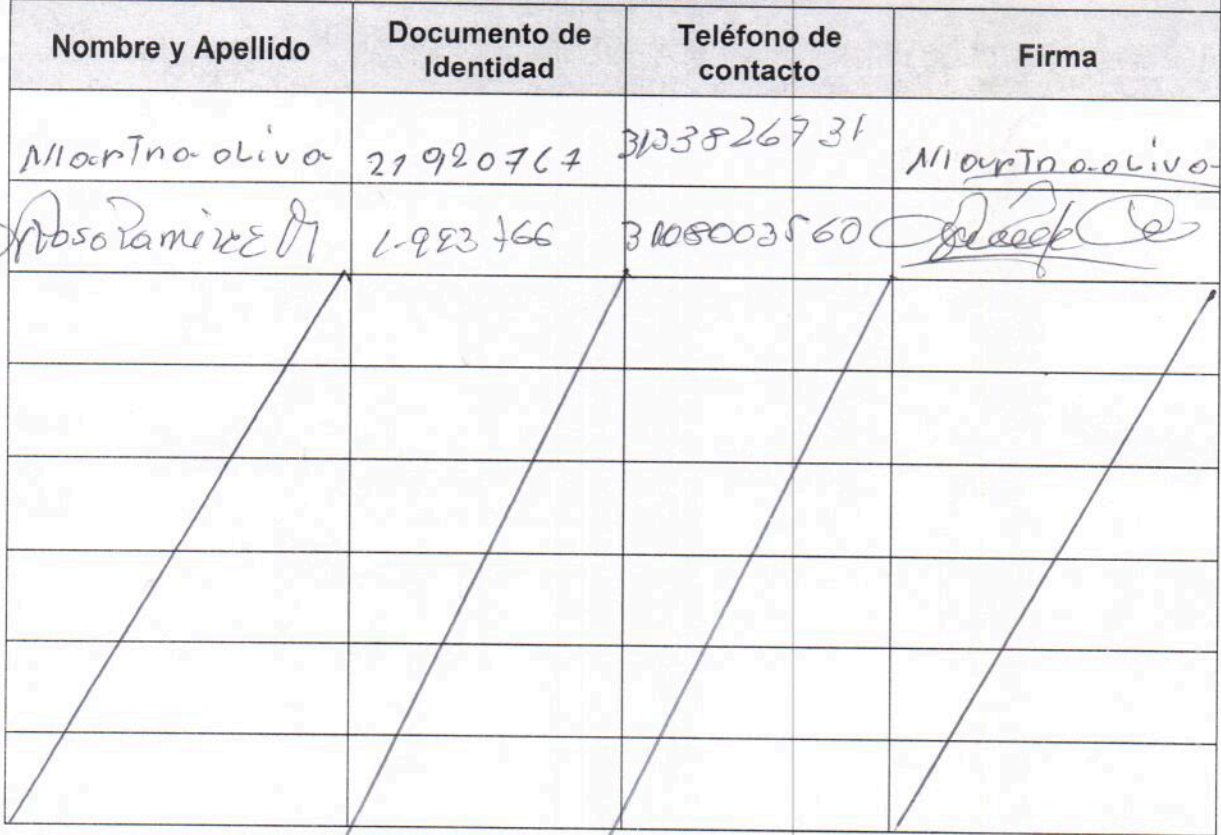 Nombre y Apellido
Documento de
Identidad
Teléfono de
contacto
Firma
Martna oliva
21920767
3133826731
Martna oliva
Ramirez M
3108003560